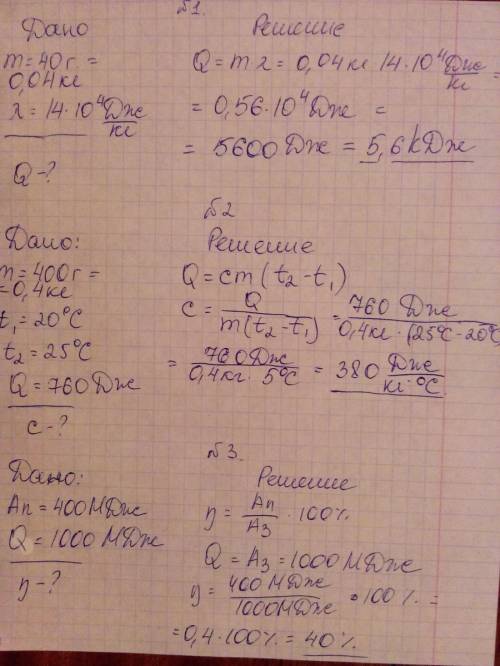 №1.
Дано
m=40г=
0,04кг
λ=14·10⁴Дж/кг
Q-?
Решение
Q=mλ=0,04кг 14·10⁴Дж/кг=
=0,56·10⁴Дж=
=5600Дж=5,6кДж
№2
Дано:
m=400г=
=0,4кг
t₁=20°C
t₂=25°C
Q=760Дж
c-?
Решение
Q=cm(t₂-t₁)
c=Q/m(t₂-t₁)=760 Дж/0,4кг·(25°C-20°C
=760Дж/0,4кг·5°C=380Дж/кг·°C
№3.
Дано:
Aп=400МДж
Q=1000МДж
η-?
Решение
η=Aп/Aз·100%
Q=Aз=1000МДж
η=400МДж/1000МДж·100%=
=0,4·100%=40%